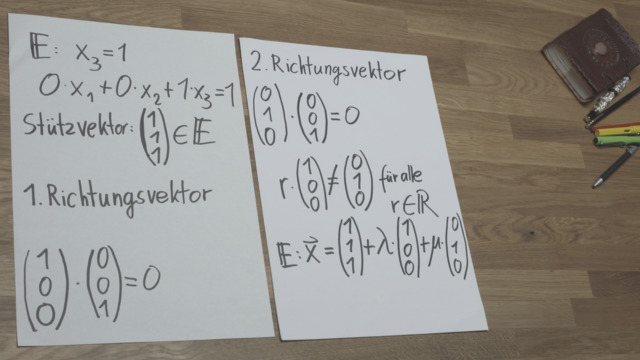 E: x₃=1
0·x₁+0·x₂+1·x₃=1
Stützvektor: (1 1 1) ∈ E
1. Richtungsvektor
(1 0 0) · (0 0 1) = 0
2. Richtungsvektor
(0 1 0) · (0 0 1) = 0
r · (1 0 0) ≠ (0 1 0) für alle
r∈ℝ
E: x⃗ = (1 1 1) + λ · (1 0 0) + μ · (0 1 0)